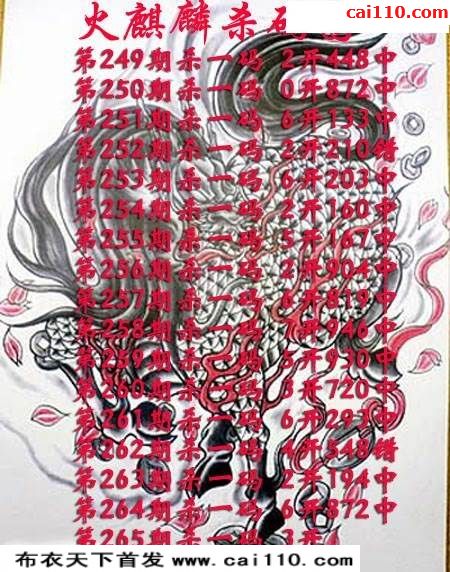 cai110.com
火麒麟杀码
第249期杀一码 2开448中
第250期杀一码 0开872中
第251期杀一码 6开133中
第252期杀一码 2开210错
第253期杀一码 6开203中
第254期杀一码 2开160中
第255期杀一码 5开167中
第256期杀一码 2开904中
第257期杀一码 6开819中
第258期杀一码 7开946中
第259期杀一码 5开930中
第260期杀一码 3开720中
第261期杀一码 6开293中
第262期杀一码 4开548错
第263期杀一码 2开194中
第264期杀一码 6开872中
第265期杀一码 3开
布衣天下首发 www.cai110.com